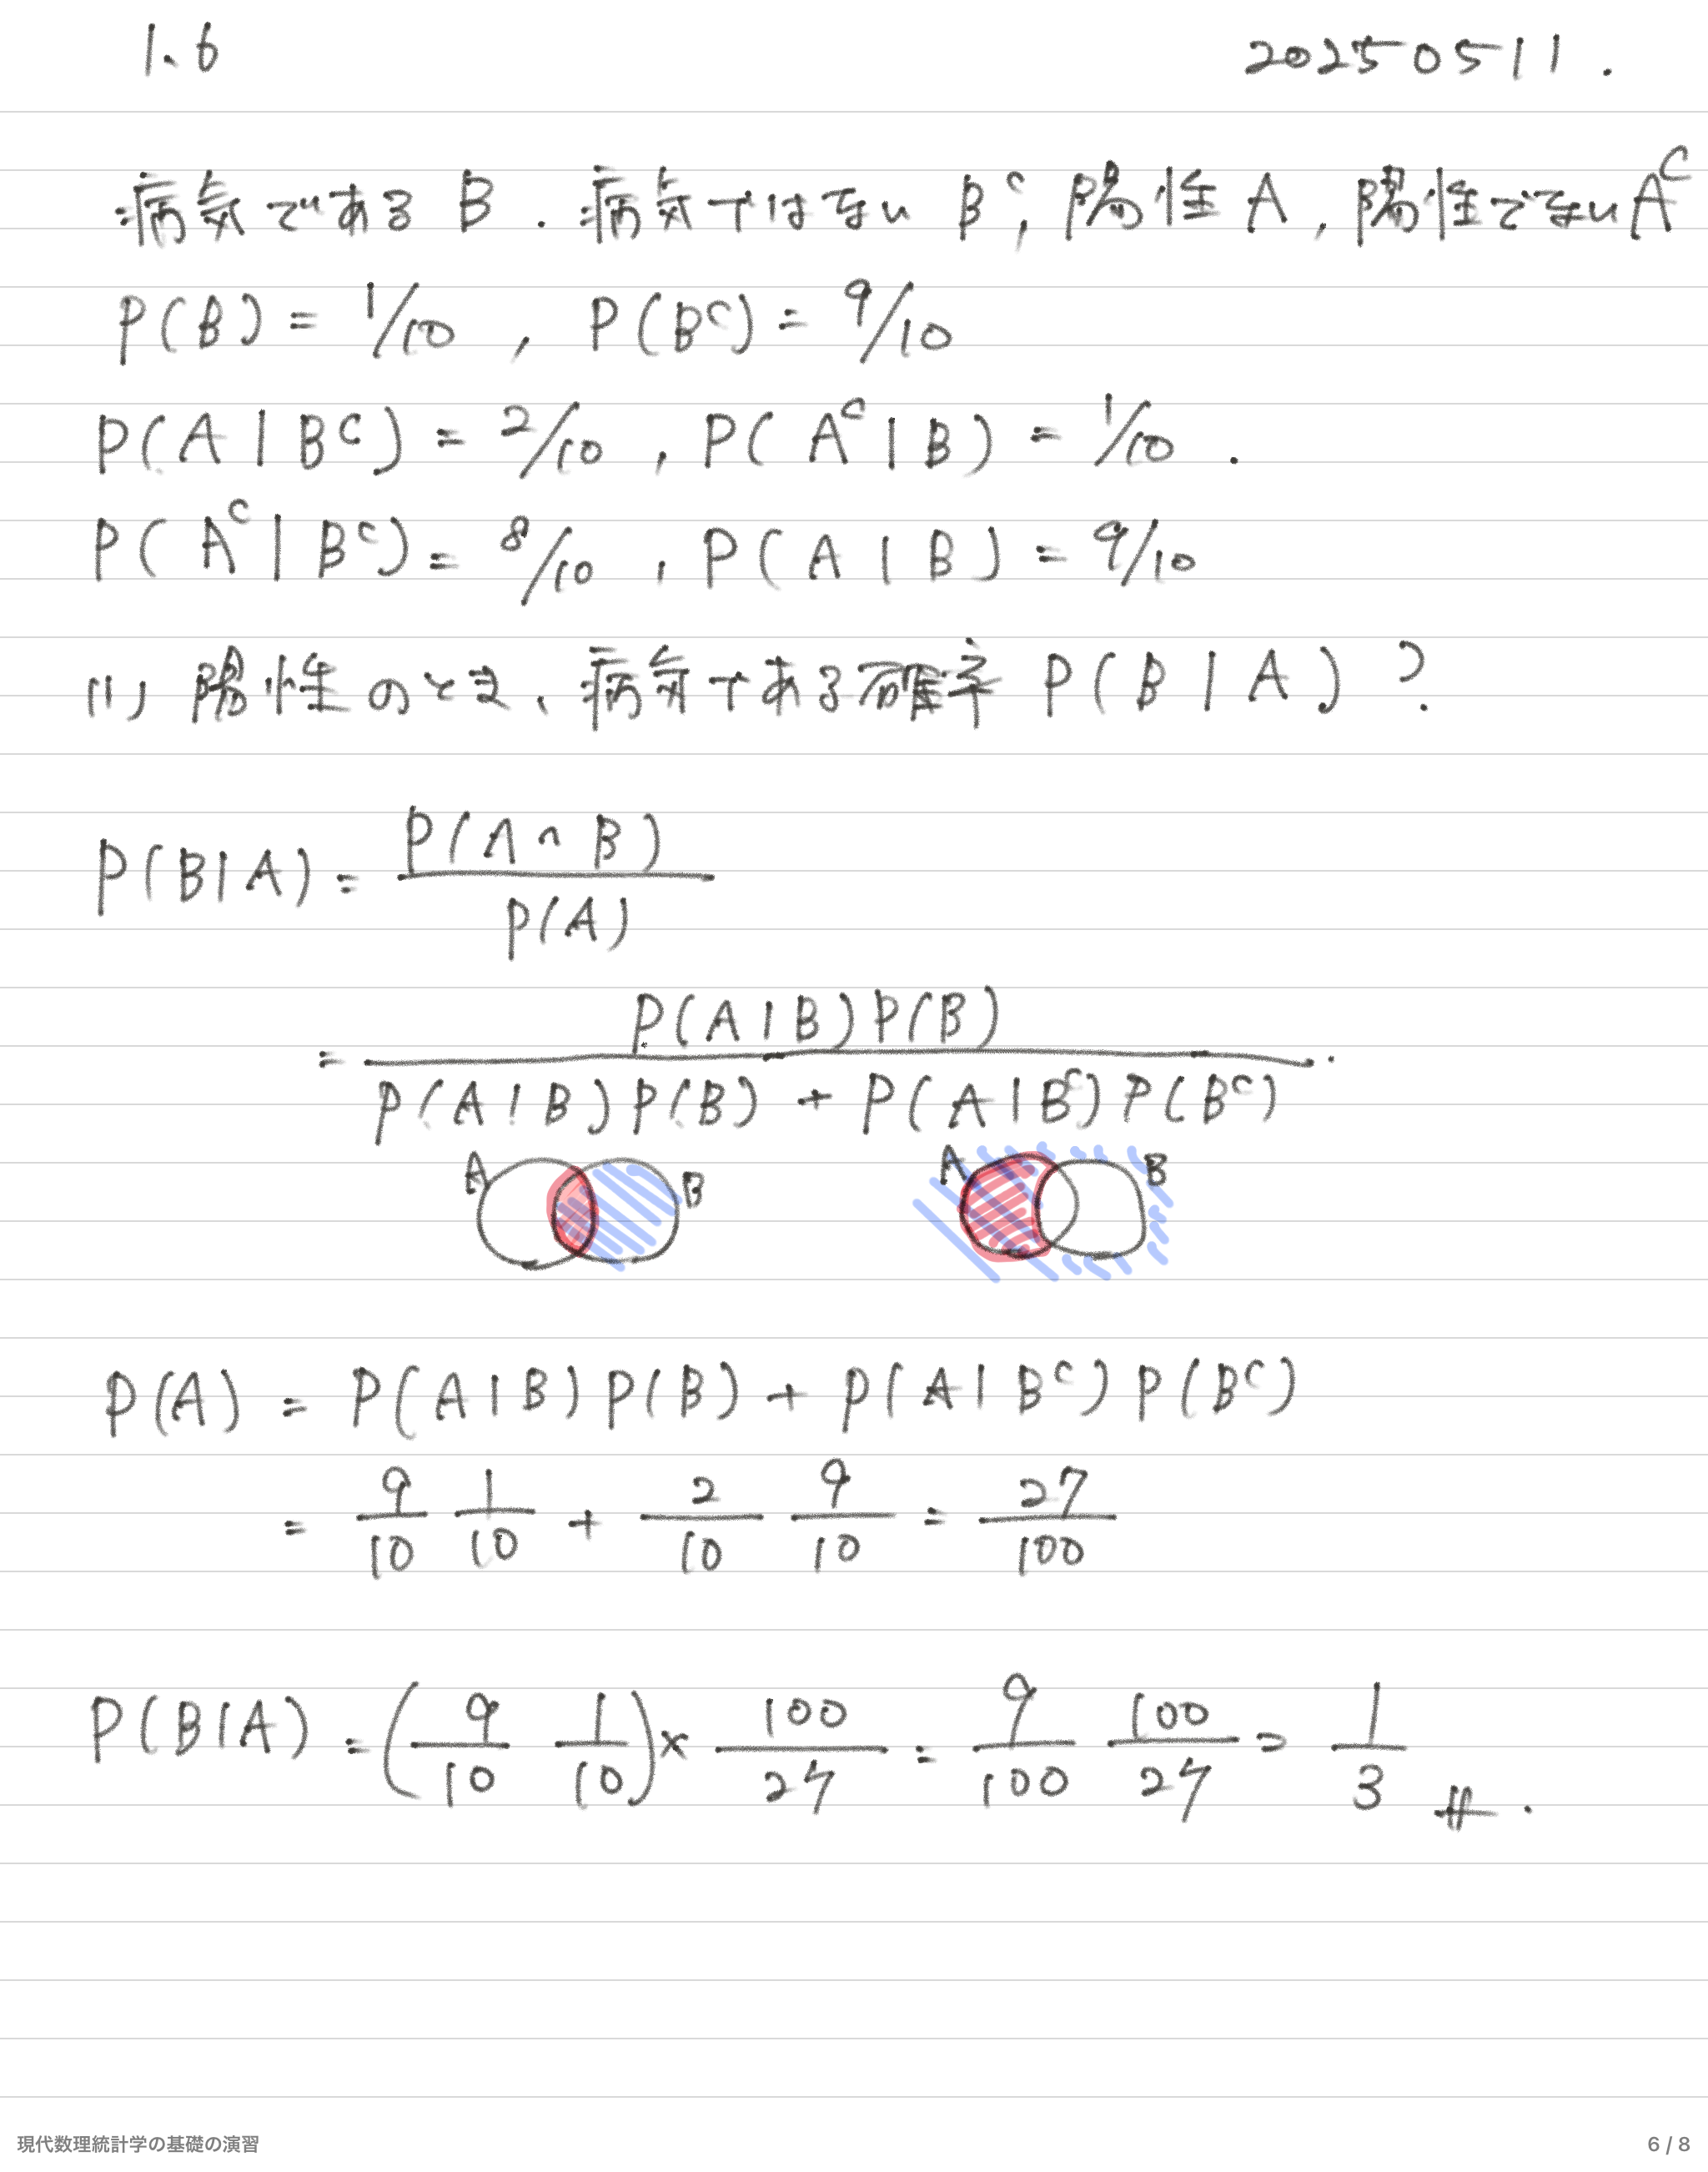 1.6
20250511.
病気である B . 病気ではない B^c, 陽性 A, 陽性でない A^c
P(B) = 1/10 , P(B^c) = 9/10
P(A|B^c) = 2/10 , P(A^c|B) = 1/10 .
P(A^c|B^c) = 8/10 , P(A|B) = 9/10
(1) 陽性のとき、病気である確率 P(B|A)?
P(B|A) = P(A∩B) / P(A)
= P(A|B)P(B) / P(A|B)P(B) + P(A|B^c)P(B^c) .
A B A B
P(A) = P(A|B)P(B) + P(A|B^c)P(B^c)
= 9/10 1/10 + 2/10 9/10 = 27/100
P(B|A) = (9/10 1/10) × 100/27 = 9/100 100/27 = 1/3 #.
現代数理統計学の基礎の演習
6 / 8